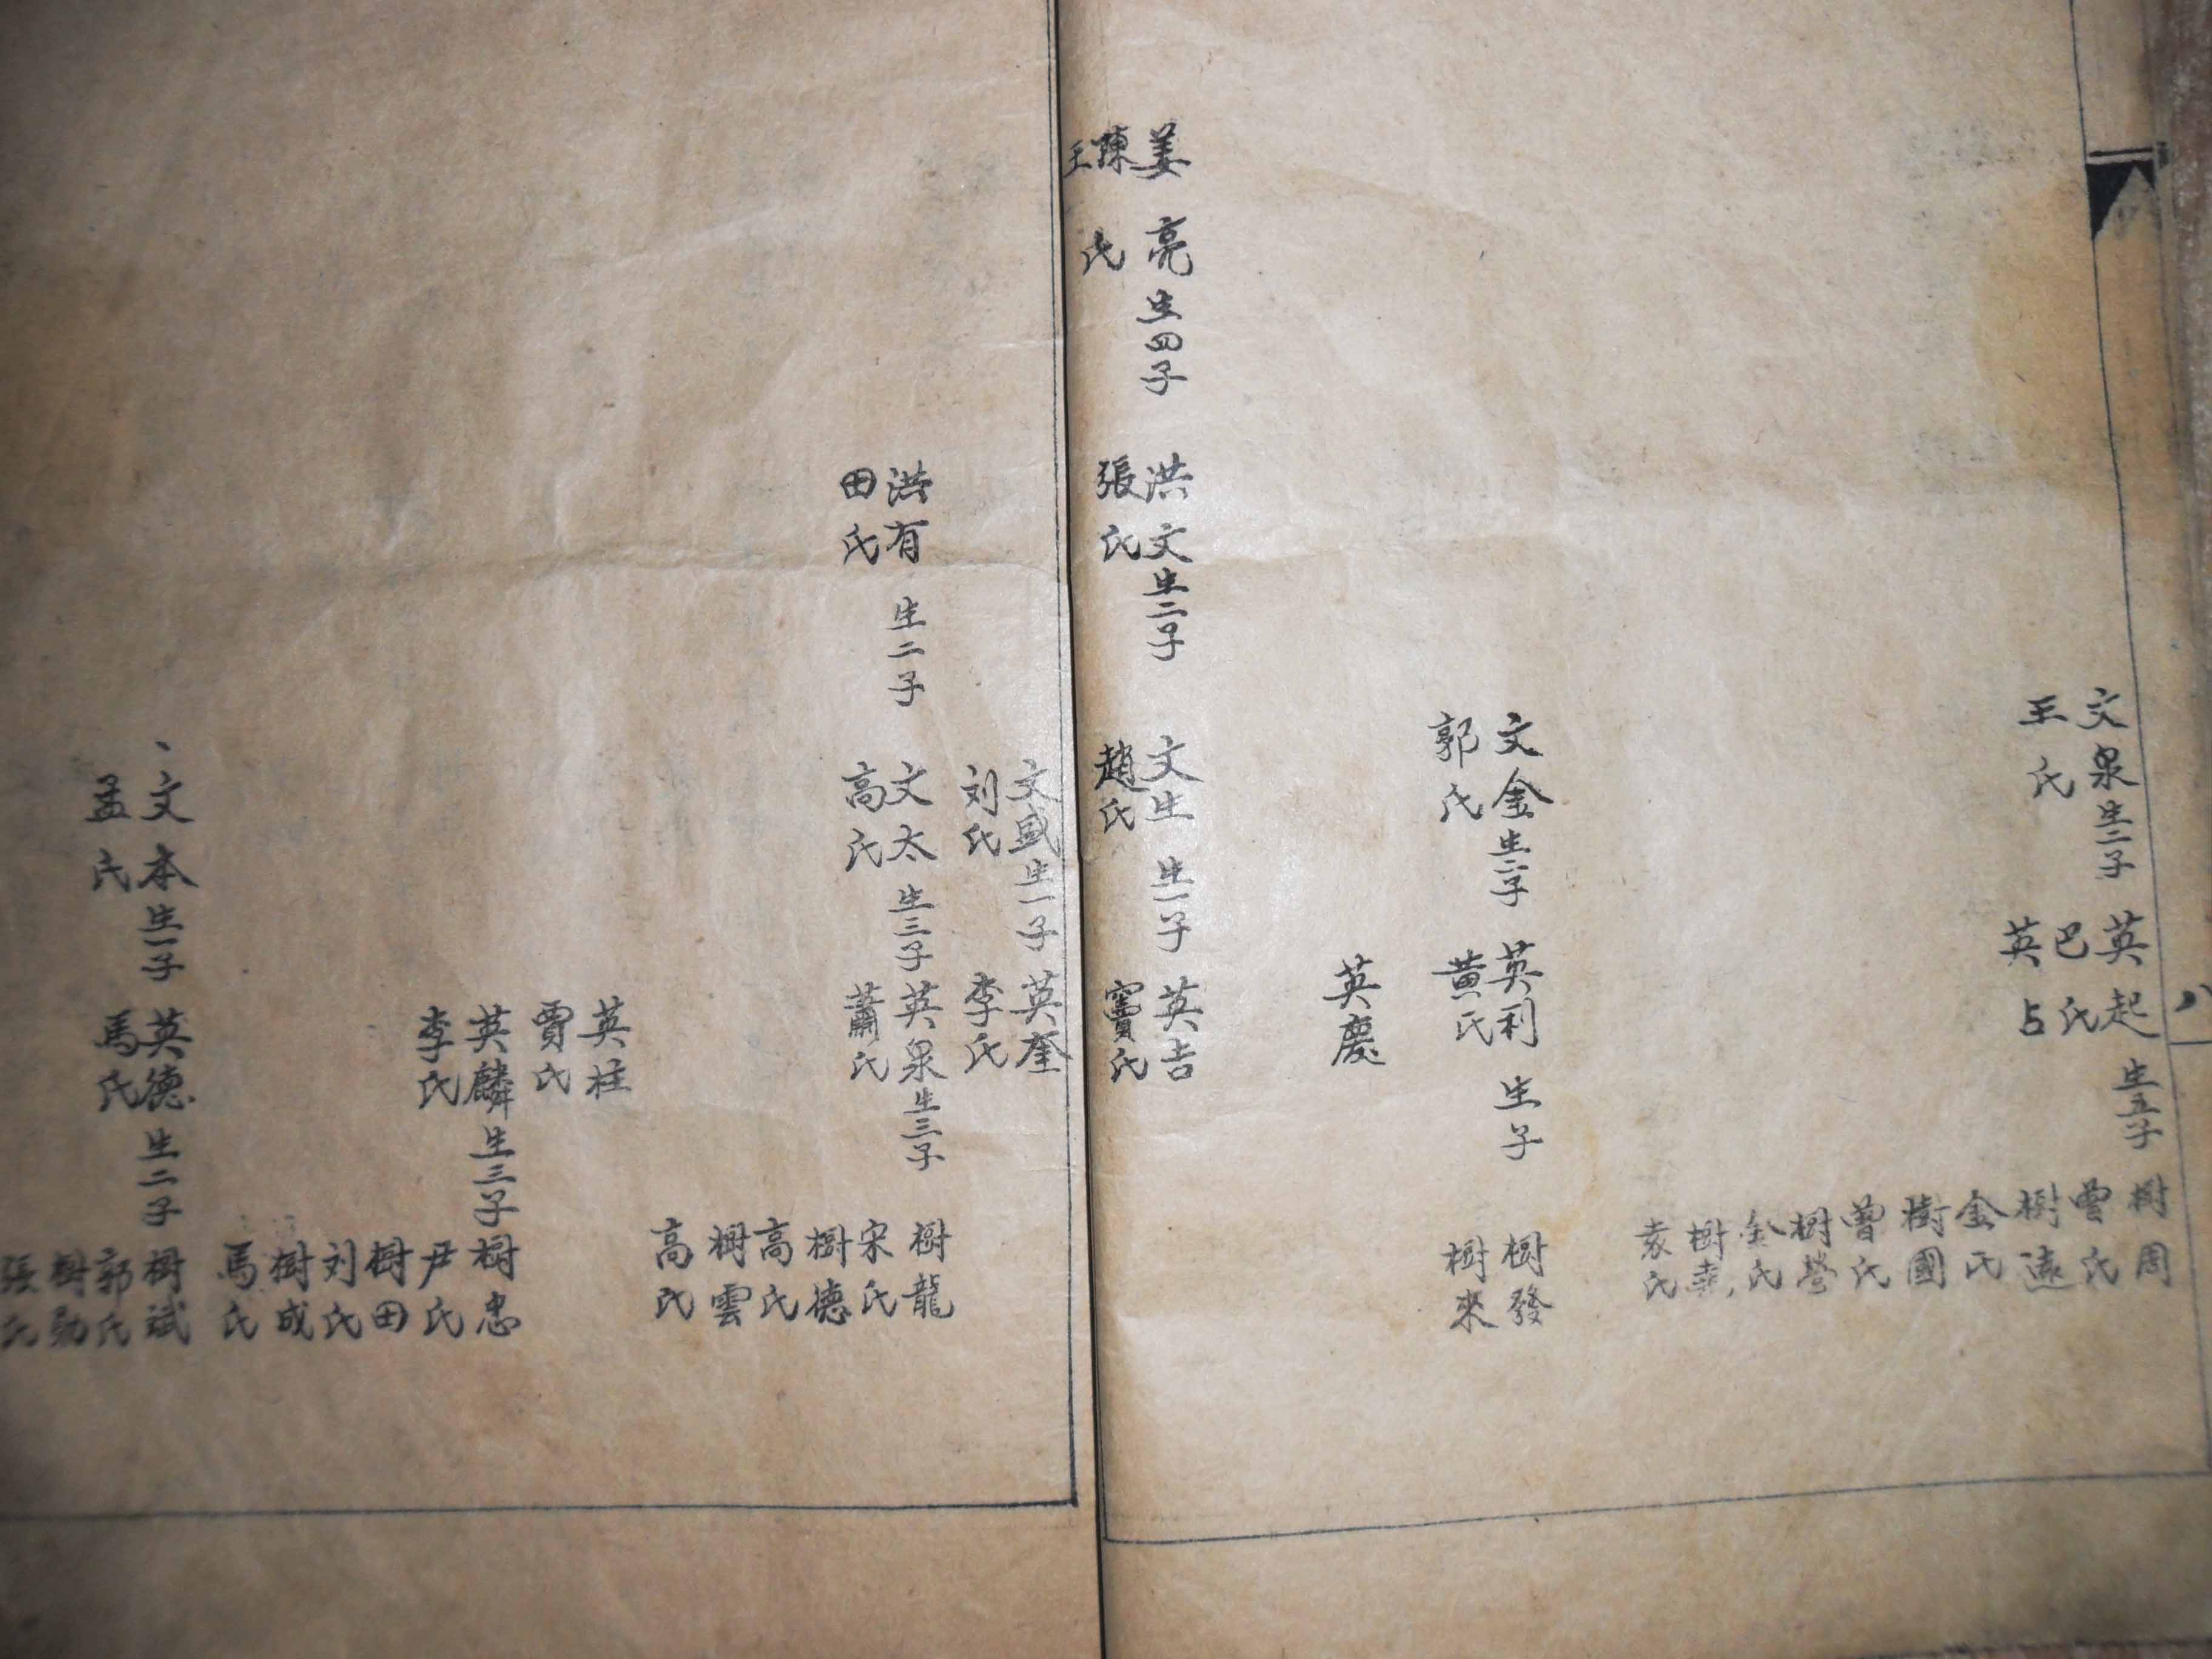 八
文泉生二子
王氏
英起生五子
巴氏
英占
樹周
曾氏
樹遠
金氏
樹國
曾氏
樹營
金氏
樹
袁氏
文金生二子
郭氏
英利生二子
黃氏
樹發
樹來
英慶
姜亮生四子
陳王氏
洪文生二子
張氏
文生生一子
趙氏
英吉
竇氏
文盛生一子
刘氏
英奎
李氏
洪有生二子
田氏
文太生三子
高氏
英泉生三子
蕭氏
樹龍
宋氏
樹德
高氏
樹雲
高氏
英桂
賈氏
英麟生三子
李氏
樹忠
尹氏
樹田
刘氏
樹成
馬氏
文本生一子
孟氏
英德生二子
馬氏
樹斌
郭氏
樹勛
張氏